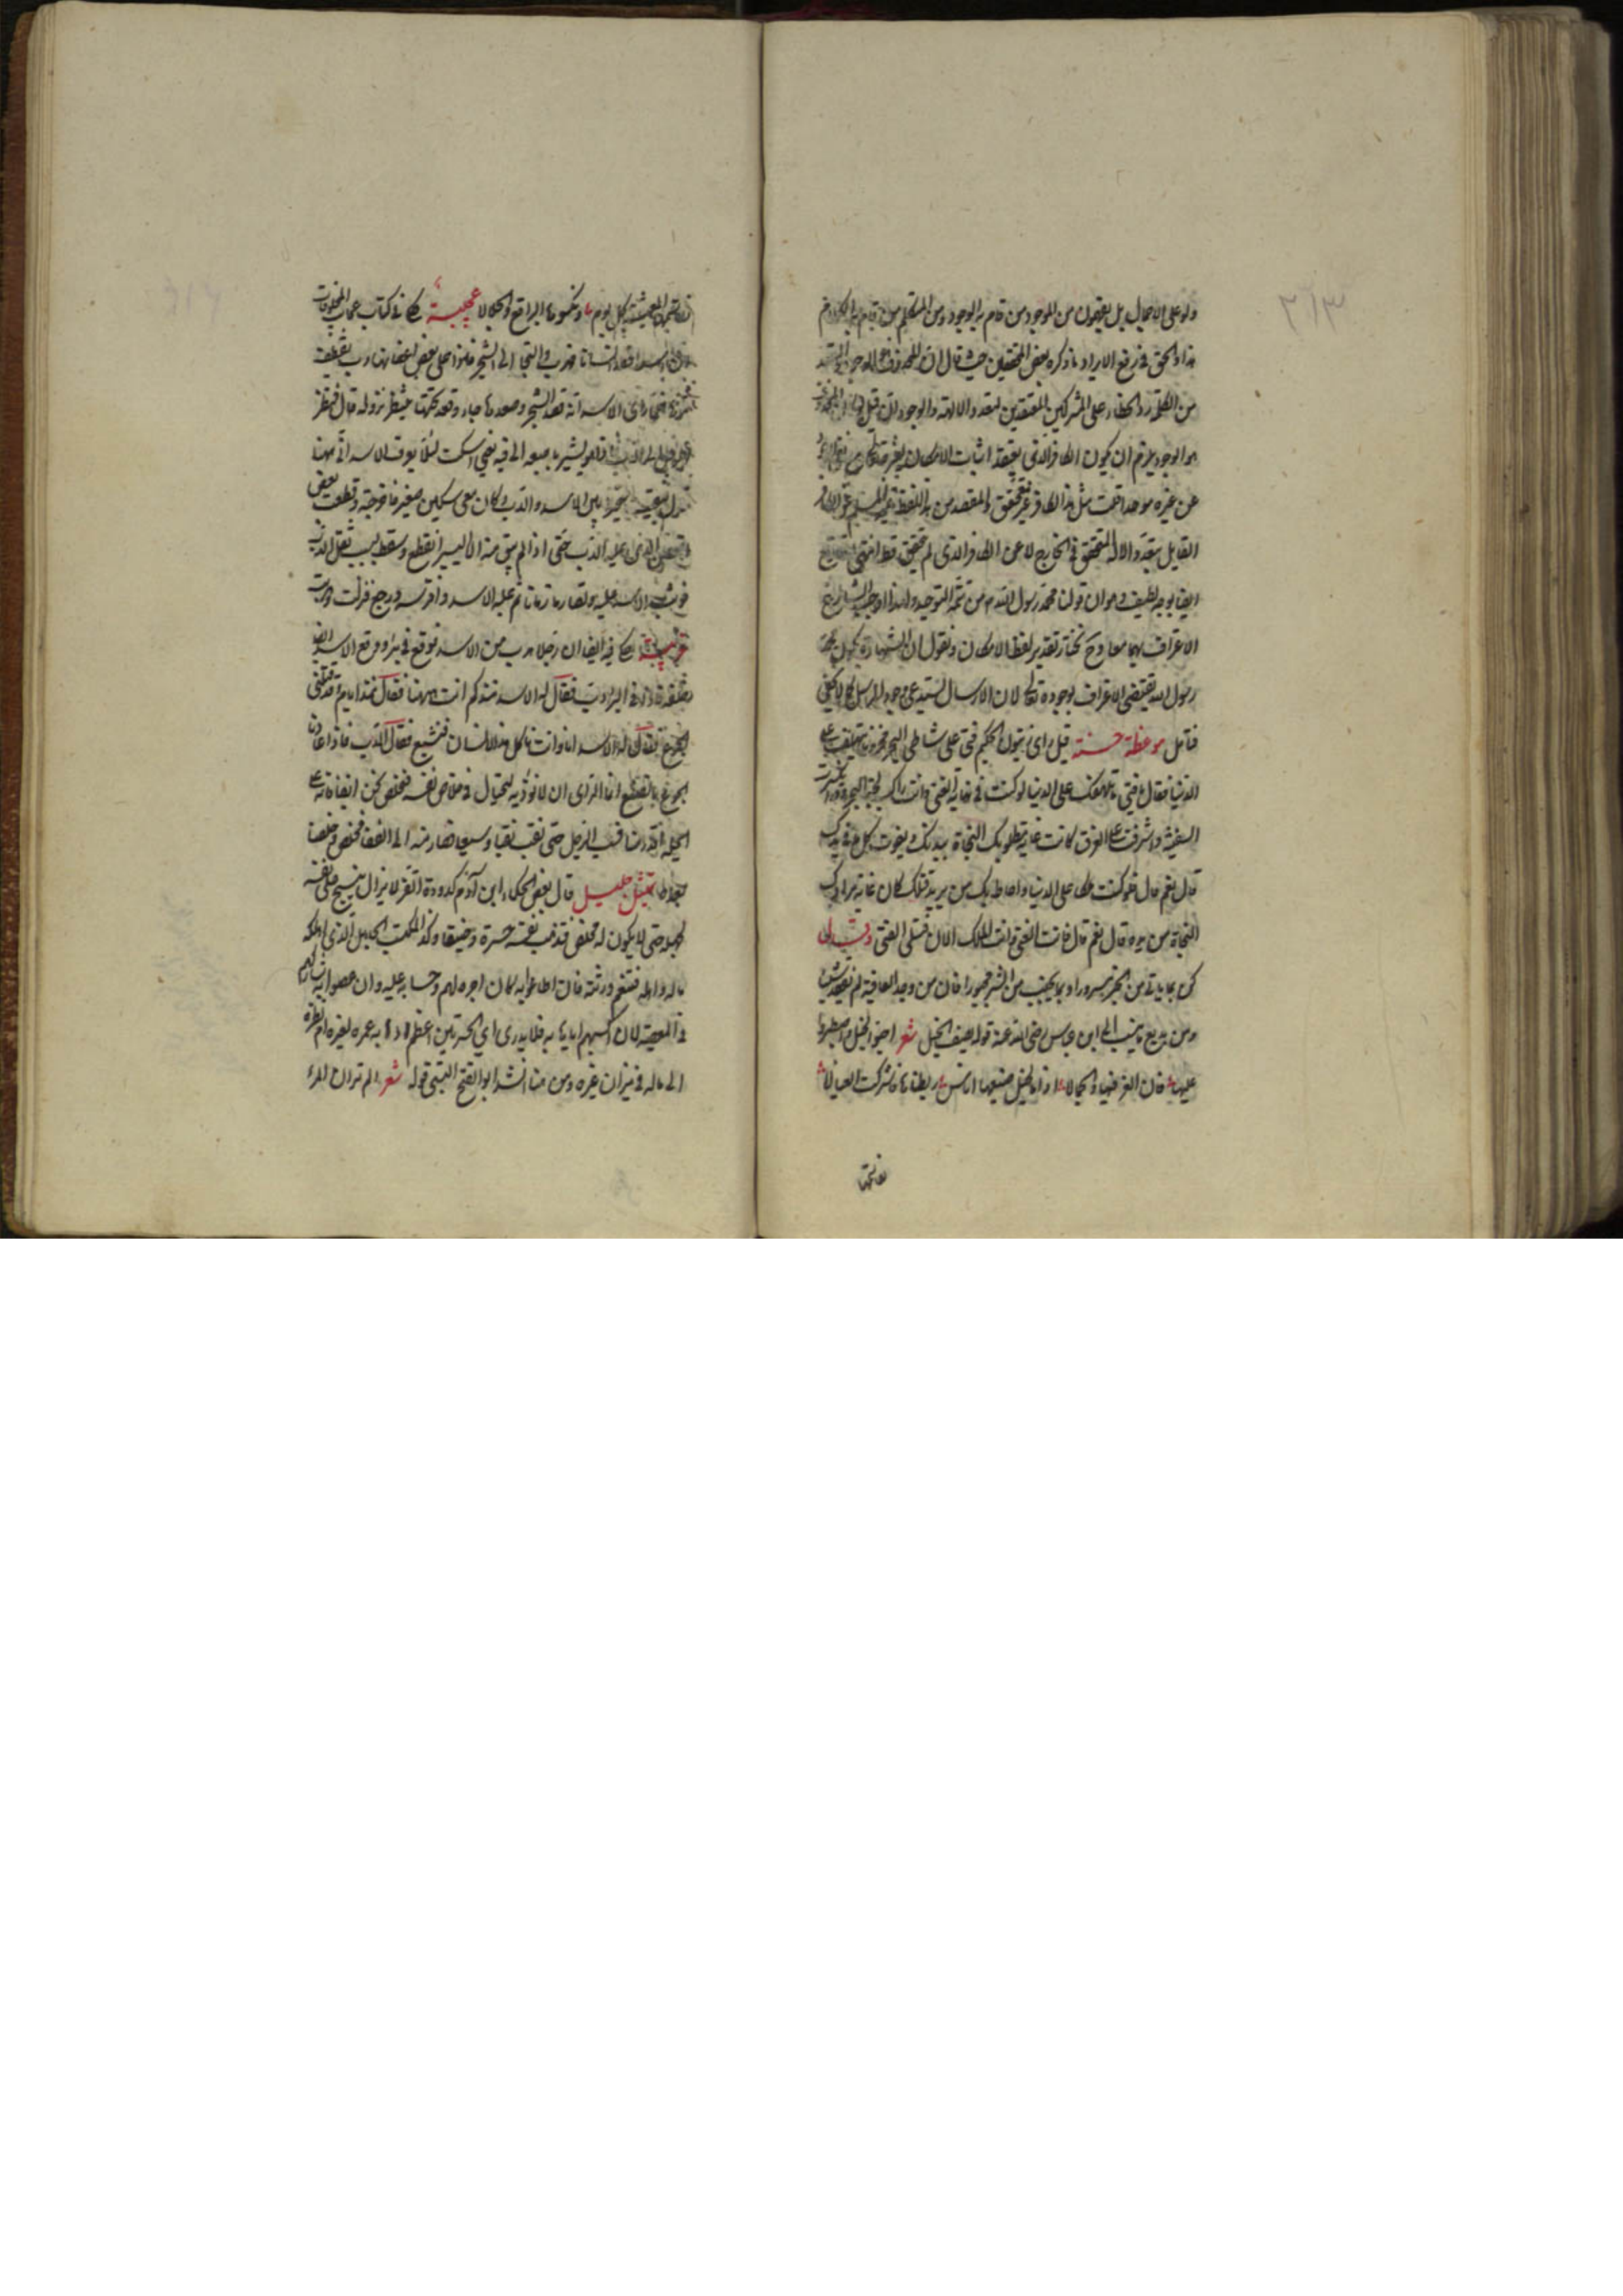 ولو على الاجمال بل يفهمون من الموجود من قام به الوجود ومن المتكلم من قام به الكلام
هذا والحق في رفع الايراد ما ذكره بعض المحققين حيث قال ان
من الكلمة رد الخطاء على المشركين المعتقدين تعدد الالهة والوجود لان قيل
هو الوجود يلزم ان يكون الكافر الذي يعتقد اثبات الامكان
عن غيره موحدا قلت مثل هذا الكافر غير متحقق والمقصد من هذا اللفظ
القايل بتعدد الاله المتحقق في الخارج لا عن الكافر الذي لم يتحقق قط انتهى
ايضا بوجه لطيف وهو ان قولنا محمد رسول الله من تتمة التوحيد ولهذا اوجب الشارع
الاعتراف بهما معا وح نختار تقدير لفظ الامكان ونقول ان الشهادة بكون محمد
رسول الله يقتضي الاعتراف بوجوده تعالى لان الارسال يستدعي وجود المرسل كما لا يخفى
فتامل موعظة حسنة قيل راى زيتون الحكيم فتى على شاطئ البحر محزونا يتلهف على
الدنيا فقال يا فتى ما تلهفك على الدنيا لو كنت في غاية الغنى وانت راكب لجة البحر وقد انكسرت
السفينة واشرفت على الغرق كانت غاية مطلوبك النجاة بيدنك ويفوت كل ما في يدك
قال نعم قال فلو كنت ملكا على الدنيا واحاط بك من يريد قتلك كان غاية مرادك
النجاة من يده قال نعم قال فانت الغنى وانت الملك الان فتسلى الفتى وقيل
كن بما ياتي من الخير مسرورا وبما يجتنب من الشر محبورا فان من وجد العافية لم يفقد شيئا
ومن بديع ما ينسب الى ابن عباس رضي الله عنه قوله يصف الخيل شعر احبوا الخيل واصطبروا
عليها فان العز فيها والجمالا اذا ما الخيل ضيعها اناس ربطناها فاشركت العيالا
نقاسمها
نقاسمها المعيشة كل يوم ونكسوها البراقع والجلالا عجيبة حكى في كتاب عجائب المخلوقات
ان اسدا قصد انسانا فهرب والتجا الى الشجر فاذا على بعض اغصانها دب يقتطف
ثمرتها فلما راى الاسد انه قصد الشجر وصعدها جاء وقعد تحتها ينتظر نزوله قال فنظر
الرجل الى الدب فاذا هو يشير باصبعه الى فيه يعني اسكت لئلا يعرف الاسد اني ههنا
متحيرا بين الاسد والدب وكان معي سكين صغير فاخرجته وقطعت بعض
الغصن الذي عليه الدب حتى اذا لم يبق منه الا اليسير انقطع وسقط بسبب ثقل الدب
فوثب الاسد عليه وتصارعا زمانا ثم غلبه الاسد وافترسه ورجع فنزلت وهربت
غريبة حكى فيه ايضا ان رجلا هرب من الاسد فوقع في بئر ووقع الاسد ايضا
خلفه فاذا في البئر دب فقال له الاسد منذ كم انت ههنا فقال منذ ايام وقد قتلني
الجوع فقال له الاسد انا وانت ناكل هذا الانسان فنشبع فقال الدب فاذا عاودنا
الجوع ما نصنع انما الراى ان لا نؤذيه ليحتال في خلاص نفسه فنخلص نحن ايضا فانه على
الحيلة اقدر منا فنقب الرجل حتى نقب نقبا وسيعا فصار منه الى الفضاء فخلص وخلصا
تمثيل جليل قال بعض الحكماء ابن آدم كدودة القز لا يزال ينسج على نفسه
لجهله حتى لا يكون له مخلص فتذهب نفسه حسرة وضيقا وكذا المكتسب الجهيل الذي اهلكه
ماله واهله فتنعم ورثته فان اطاعوا به كان اجره لهم وحسابه عليه وان عصوا به شاركهم
في المعصية لان اكسبهم اياها به فلا يدري اي الحسرتين اعظم اذهابه عمره لغيره ام نظره
الى ماله في ميزان غيره ومن هنا انشد ابو الفتح البستي قوله شعر الم تر ان المرء